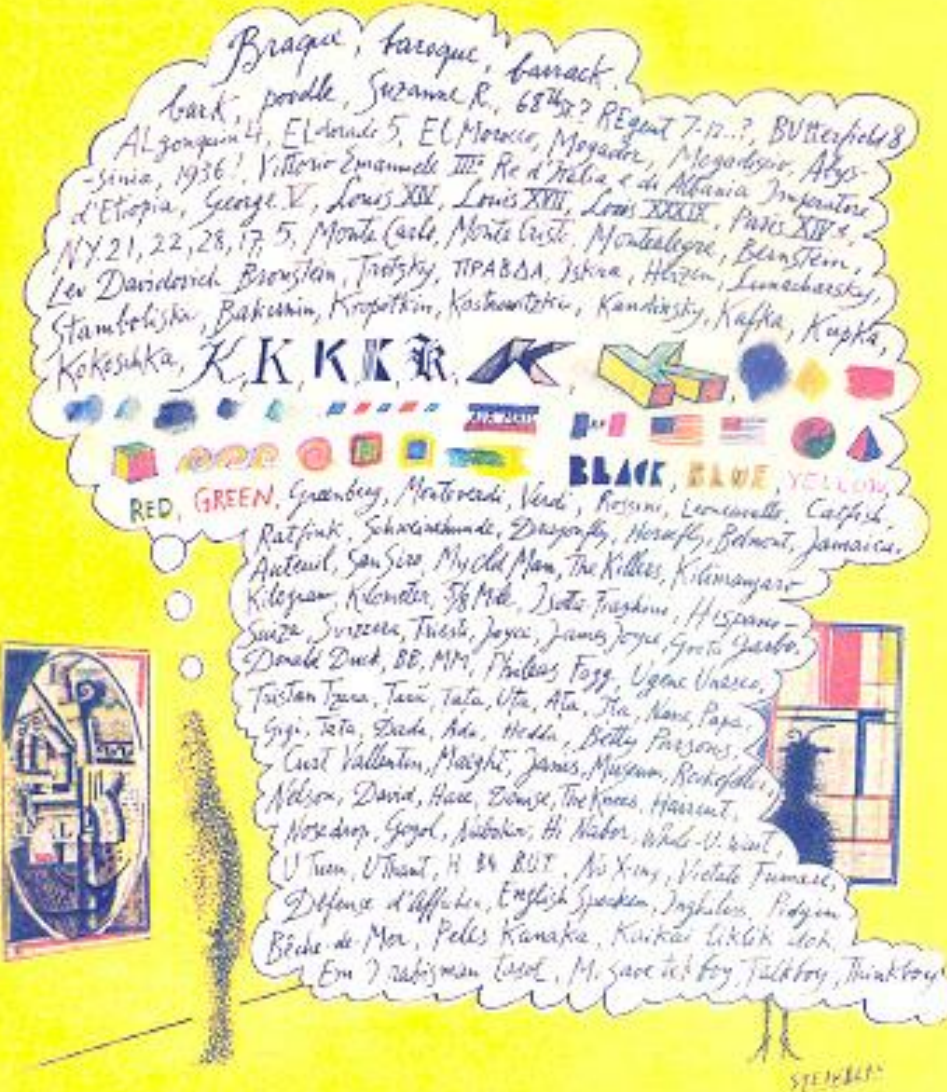 Braque, baroque, barrack,
bark, poodle, Suzanne R., 68th St.? REgent 7-12..?, BUtterfield 8
ALgonquin 4, ELdorado 5, El Morocco, Mogador, Mogadiscio, Abys-
-sinia, 1936!, Vittorio Emanuele III° Re d'Italia e di Albania Imperatore
d'Etiopia, George V, Louis XIV, Louis XVII, Louis XXXIX, Paris XIVe,
N.Y. 21, 22, 28, 17, 5, Monte Carlo, Monte Cristo, Montealegre, Bernstein,
Lev Davidovich Bronstein, Trotzky, ПРАВДА, Iskra, Herzen, Lunacharsky,
Stamboliski, Bakunin, Kropotkin, Kostrowitzki, Kandinsky, Kafka, Kupka,
Kokoschka, K, K, K, K, K, K, K,
BLACK, BLUE, YELLOW,
RED, GREEN, Greenberg, Monteverdi, Verdi, Rossini, Leoncavallo, Catfish,
Ratfink, Schweinhunde, Dragonfly, Horsefly, Belmont, Jamaica,
Auteuil, San Siro, My Old Man, The Killers, Kilimangaro
Kilogram, Kilometer, 5/8 Mile, Isotta Fraschini, Hispano-
Suiza, Svizzera, Trieste, Joyce, James Joyce, Greta Garbo,
Donald Duck, BB, MM, Phileas Fogg, Ugene Unesco,
Tristan Tzara, Tata, Uta, Ata, Ita, Nane, Papa,
Gigi, Tata, Dada, Ada, Hedda, Betty Parsons,
Curt Valentin, Maeght, Janis, Museum, Rockefeller,
Nelson, David, Hare, Denise, The Knees,
Nosedrop, Gogol, Nabokov, Hi Nabor, Whale-U-Want,
U Turn, U Thant, H. B4 BUT, No X-ing, Vietato Fumare,
Défense d'Afficher, English Spoken, Inghilese, Pidgin
Bêche-de-Mer, Peles Kanaka, Kaikai Liklik dok,
Em, M. save tok boy, Talkboy, Thinkboy
STEINBERG